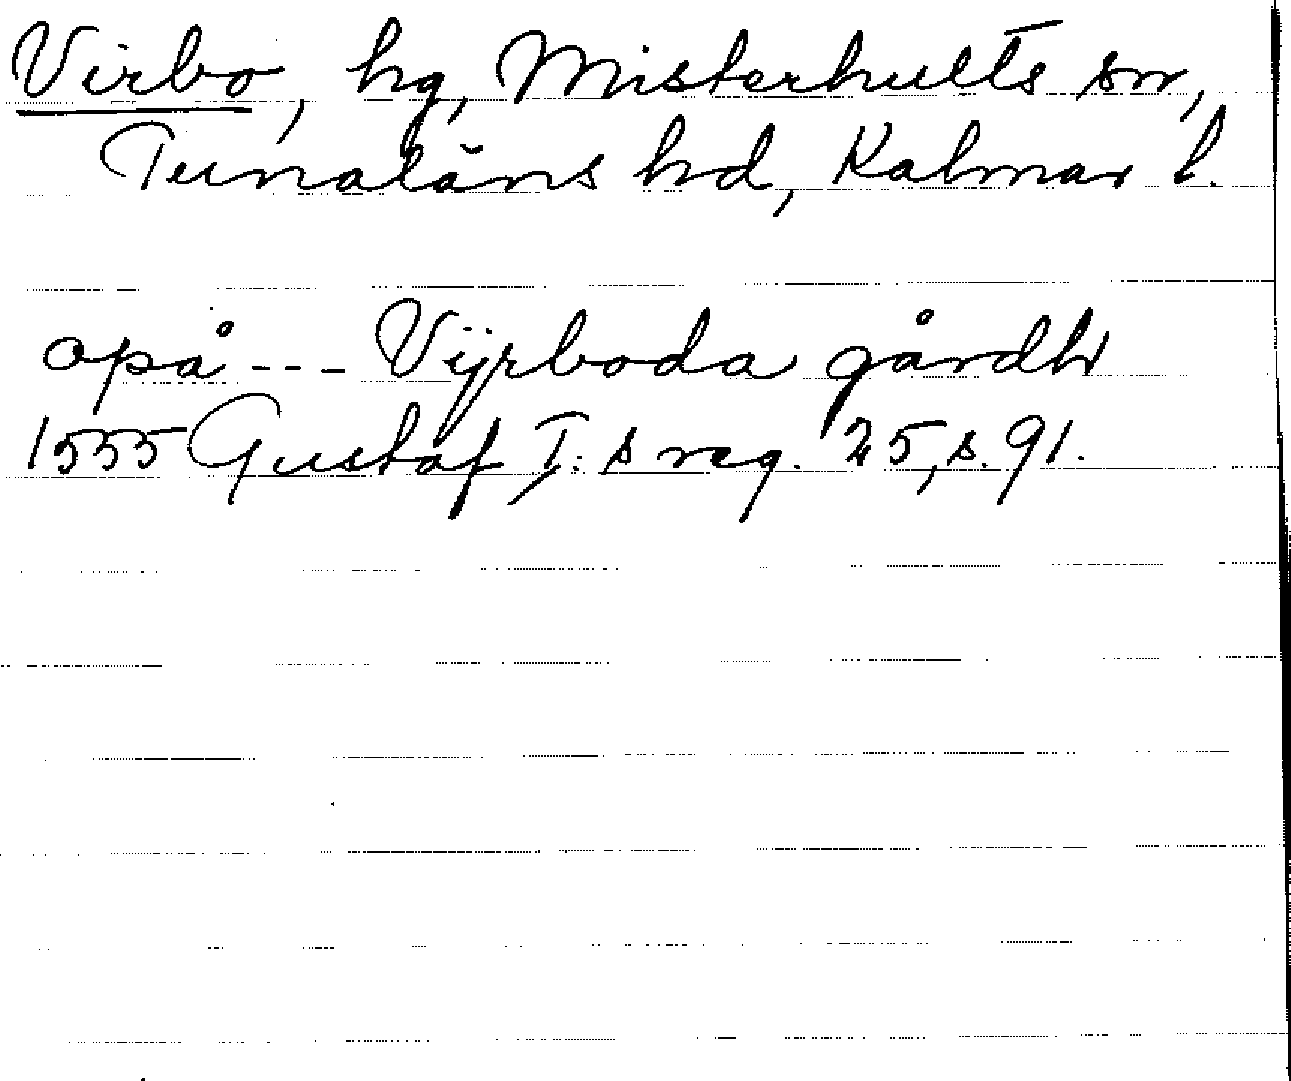 Virbo, hg, Misterhults sn,
Tunaläns hd, Kalmar l.
opå --- Vijrboda gårdh
1555 Gustaf I:s reg. 25, s. 91.